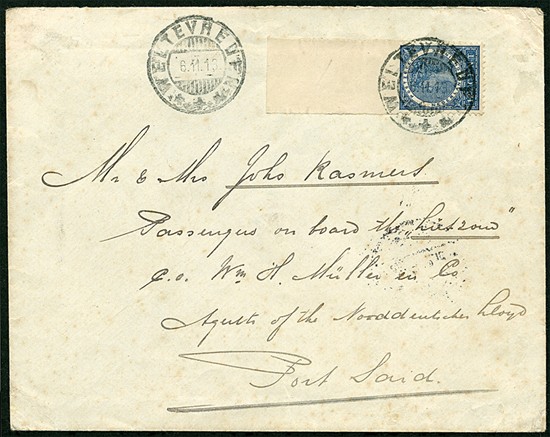 WELTEVREDEN
6.11.13
WELTEVREDEN
11.13
Mr & Mrs Johs Kasmers
Passengers on board the "Lützow"
c.o. Wm H. Müller en Co.
Agents of the Norddeutscher Lloyd
Port Said.